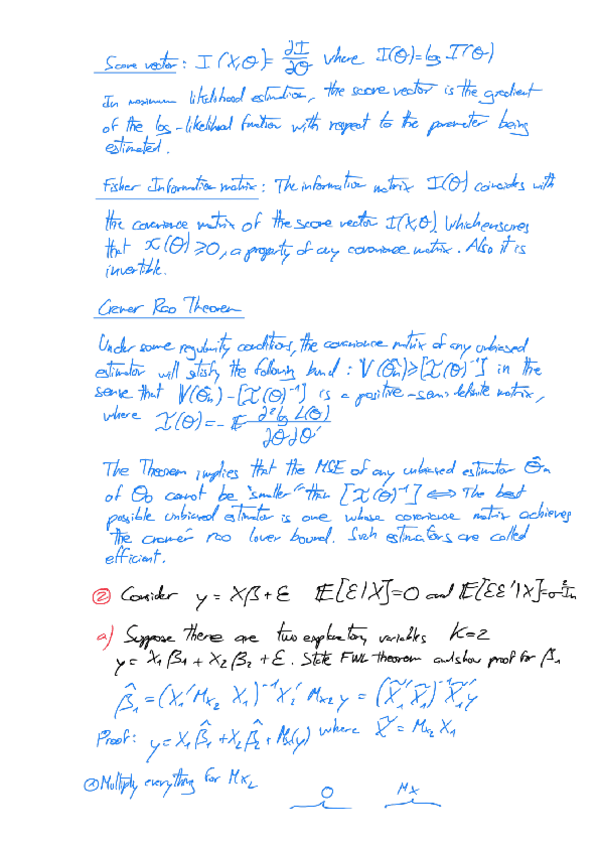 Score vector: I(X,θ) = ∂I/∂θ where I(θ)=log I(θ)
In maximum likelihood estimation, the score vector is the gradient
of the log-likelihood function with respect to the parameter being
estimated.
Fisher Information matrix: The information matrix I(θ) coincides with
the covariance matrix of the score vector I(X,θ). Which ensures
that I(θ) ≥ 0, a property of any covariance matrix. Also it is
invertible.
Cramer Rao Theorem
Under some regularity conditions, the covariance matrix of any unbiased
estimator will satisfy the following bound: V(θ̂n) ≥ [I(θ)⁻¹] in the
sense that V(θ̂n) - [I(θ)⁻¹] is a positive-semi definite matrix,
where I(θ) = - E ∂² log L(θ) / ∂θ∂θ'
The Theorem implies that the MSE of any unbiased estimator θ̂n
of θ0 cannot be "smaller" than [I(θ)⁻¹] ⟺ The best
possible unbiased estimator is one whose covariance matrix achieves
the cramér rao lower bound. Such estimators are called
efficient.
② Consider y = Xβ+ε E[ε|X]=0 and E[εε'|X]=σ²In
a) Suppose there are two explanatory variables K=2
y = X1β1 + X2β2 + ε. State FWL theorem and show proof for β1
β̂1 = (X1' Mx2 X1)⁻¹ X2' Mx2 y = (X̃'X̃1)⁻¹ X̃'y
Proof: y = X1β̂1 + X2β̂2 + Mx(y) where X̃ = Mx2 X1
Multiply everything for Mx2
0 Mx